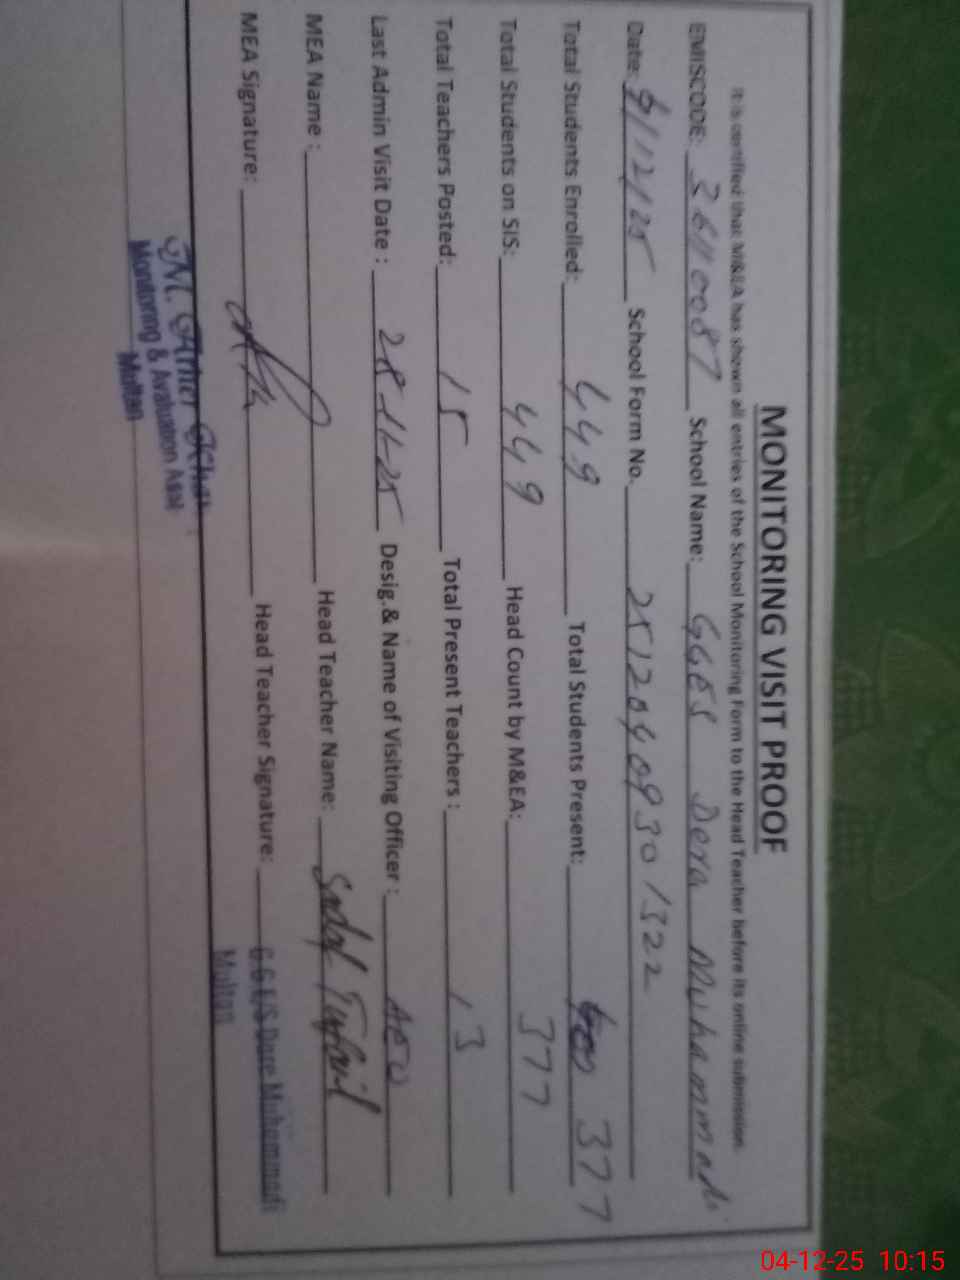 MONITORING VISIT PROOF
It is certified that M&EA has shown all entries of the School Monitoring Form to the Head Teacher before its online submission.
EMISCODE: 36110087 School Name: GGES Dera Muhammadi
Date: 4/12/25 School Form No. 25120409301322
Total Students Enrolled: 449 Total Students Present: 377
Total Students on SIS: 449 Head Count by M&EA: 377
Total Teachers Posted: 15 Total Present Teachers : 13
Last Admin Visit Date : 28-11-25 Desig.& Name of Visiting Officer : AEO
MEA Name : Head Teacher Name: Sadaf Tufail
MEA Signature: Head Teacher Signature:
G.G.E/S Dare Muhammadi
Multan
M. Ather
Monitoring & Avaluation Asst
Multan
04-12-25 10:15